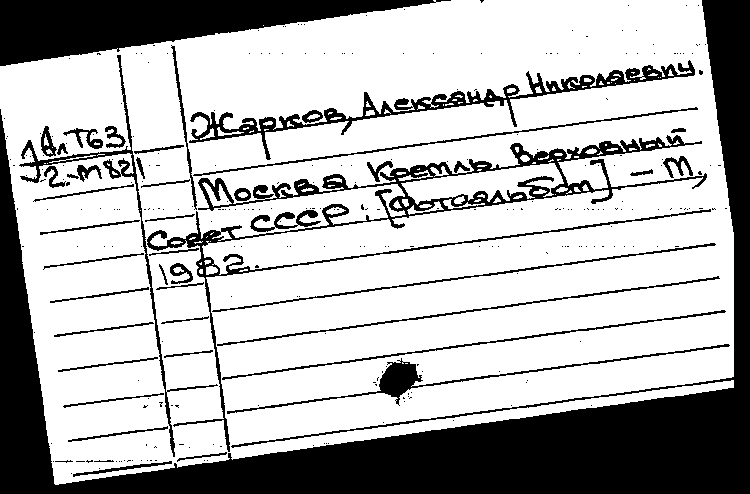 Жарков, Александр Николаевич.
Ал Т63
2-М821
Москва. Кремль. Верховный
Совет СССР : [Фотоальбом] – М.,
1982.